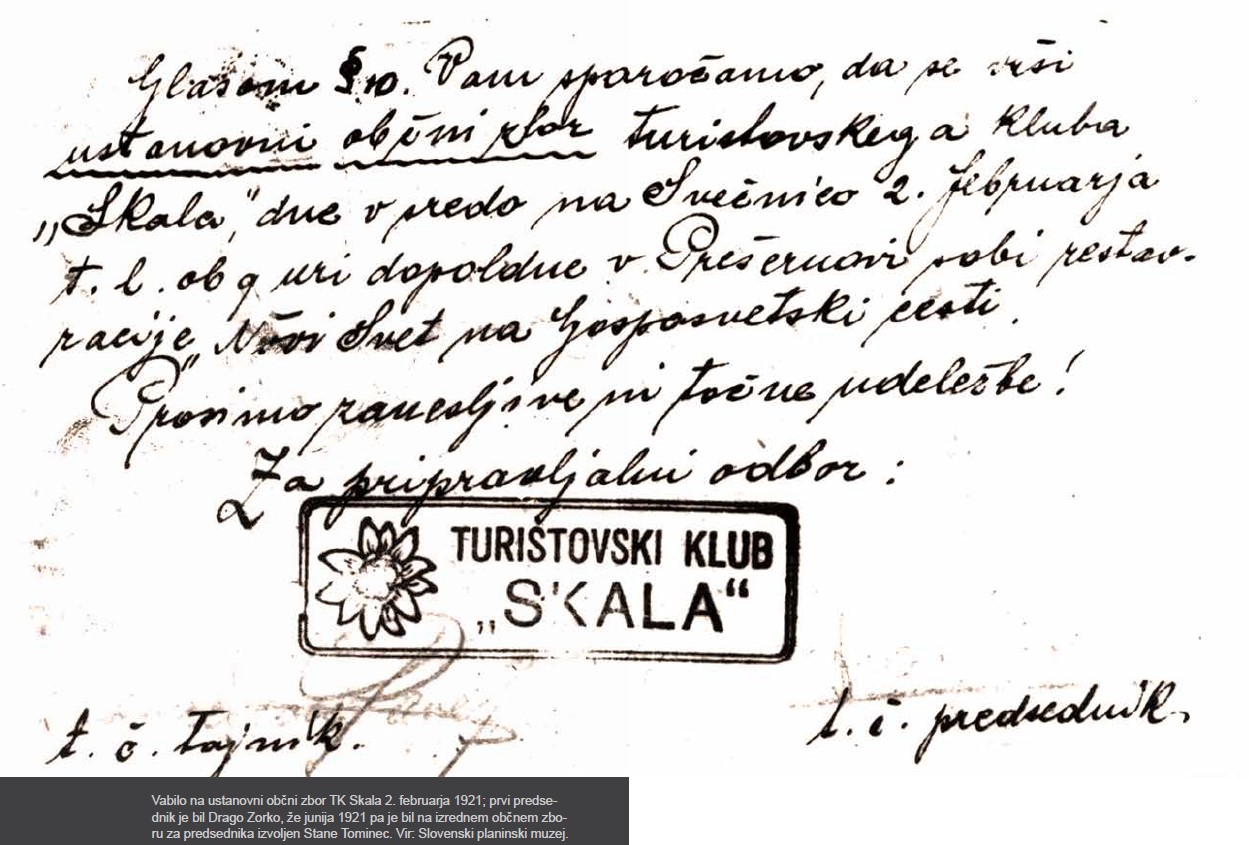 Glasom § 10. Vam sporočamo, da se vrši
ustanovni občni zbor turistovskega kluba
„Skala“, dne v sredo na Svečnico 2. februarja
t. l. ob 9 uri dopoldne v Prešernovi sobi restav-
racije „Novi Svet na Gosposvetski cesti.
Prosimo zanesljive in točne udeležbe!
Za pripravljalni odbor:
TURISTOVSKI KLUB
„SKALA“
t. č. tajnik.
t. č. predsednik.
Vabilo na ustanovni občni zbor TK Skala 2. februarja 1921; prvi predse-
dnik je bil Drago Zorko, že junija 1921 pa je bil na izrednem občnem zbo-
ru za predsednika izvoljen Stane Tominec. Vir: Slovenski planinski muzej.